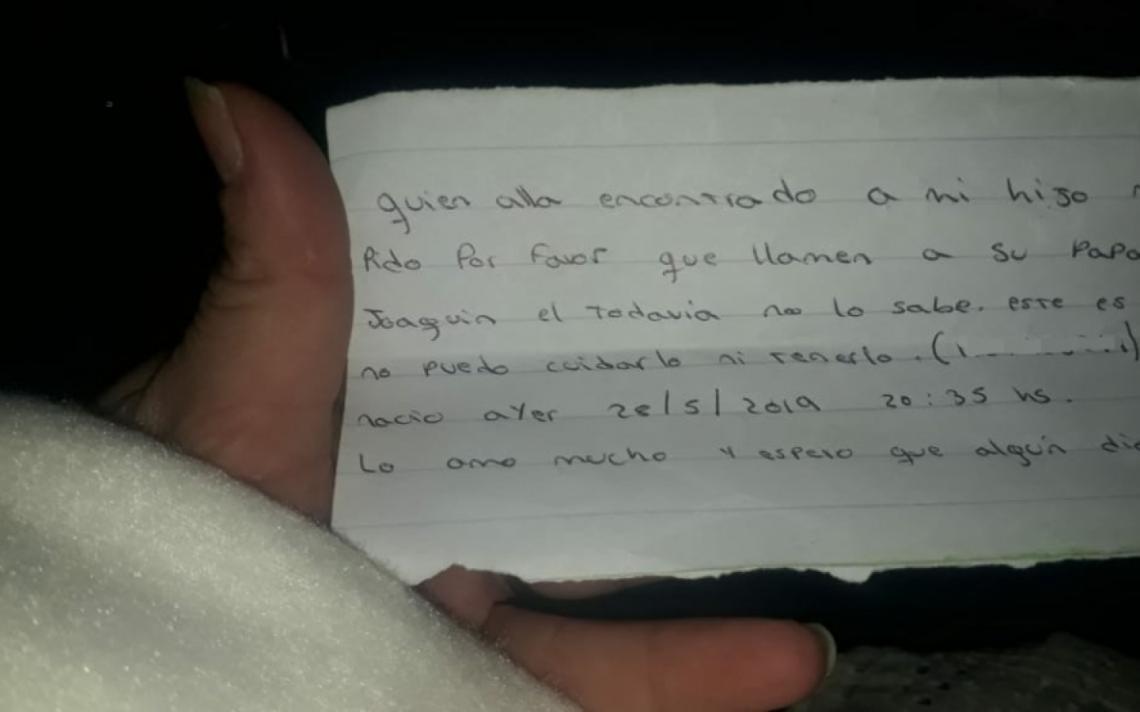 quien alla encontrado a mi hijo
Pido Por favor que llamen a su Papa
Joaquin el todavia no lo sabe. este es
no puedo cuidarlo ni tenerlo. (
nacio ayer 28/5/2019 20:35 hs.
Lo amo mucho y espero que algún dia